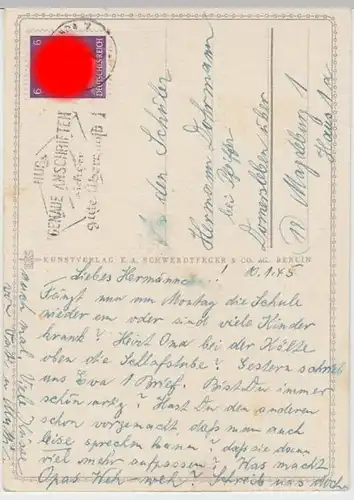 6 DEUTSCHES REICH 6
NUR
GENAUE ANSCHRIFTEN
sichern
gute Überkunft!
An den Schüler
Hermann Dohrmann
bei Pfeiffer
Domersleben über
Magdeburg 1
Haus 1a
KUNSTVERLAG E. A. SCHWERDTFEGER & CO. AG. BERLIN
Liebes Hermännc !! 10.1.45
Fängt nun am Montag die Schule
wieder an oder sind viele Kinder
krank? Heizt Oma bei der Kälte
oben die Schlafstube? Gestern schrieb
uns Eva 1 Brief. Bist Du immer
schön artig? Hast Du den anderen
schon vorgemacht, daß man auch
leise sprechen kann? daß sie dann
viel mehr aufpassen! Was macht
Opas Weh-weh? Schreib uns doch
auch mal. Viel Küsse
von Vati u. Mutti